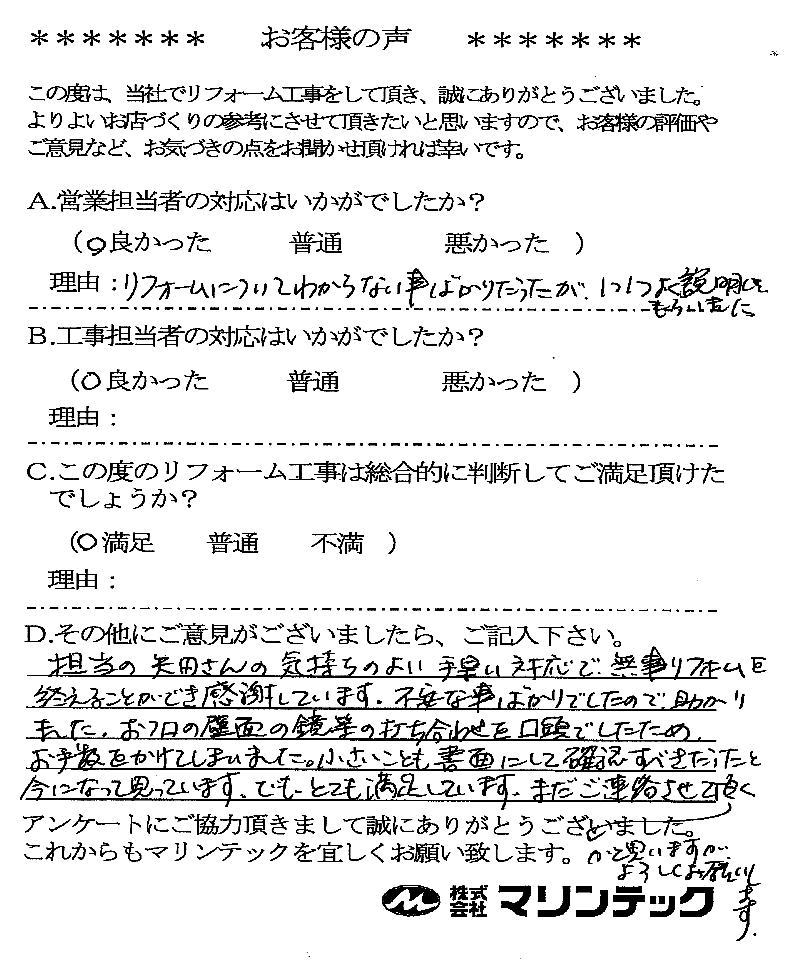 ******* お客様の声 *******
この度は、当社でリフォーム工事をして頂き、誠にありがとうございました。
よりよいお店づくりの参考にさせて頂きたいと思いますので、お客様の評価や
ご意見など、お気づきの点をお聞かせ頂ければ幸いです。
A.営業担当者の対応はいかがでしたか？
（○良かった 普通 悪かった ）
理由：リフォームについてわからない事ばかりだったが、1つ1つよく説明して
もらいました
B.工事担当者の対応はいかがでしたか？
（○良かった 普通 悪かった ）
理由：
C.この度のリフォーム工事は総合的に判断してご満足頂けた
でしょうか？
（○満足 普通 不満 ）
理由：
D.その他にご意見がございましたら、ご記入下さい。
担当の矢田さんの気持ちのよい手早い対応で、無事リフォームを
終えることができ感謝しています。不安な事ばかりでしたので助かり
ました。お フロの壁面の鏡等の打ち合わせを口頭でしたため、
お手数をかけてしまいました。小さいことも書面にして確認すべきだったと
今になって思っています。でも、とても満足しています。まだご連絡させて頂く
アンケートにご協力頂きまして誠にありがとうございました。
これからもマリンテックを宜しくお願い致します。
かと思いますが、
よろしくお願いし
ます。
株式会社 マリンテック